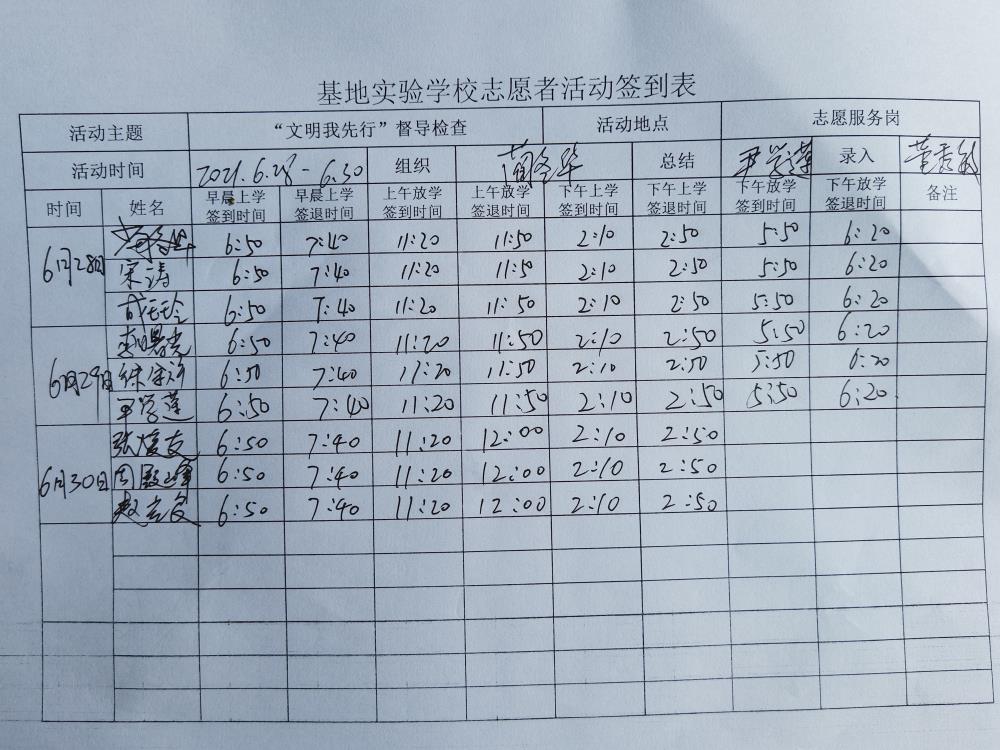 基地实验学校志愿者活动签到表
活动主题 “文明我先行”督导检查 活动地点 志愿服务岗
活动时间 2021.6.28-6.30 组织 总结 录入
时间 姓名 早晨上学签到时间 早晨上学签退时间 上午放学签到时间 上午放学签退时间 下午上学签到时间 下午上学签退时间 下午放学签到时间 下午放学签退时间 备注
6月28日 6:50 7:40 11:20 11:50 2:10 2:50 5:50 6:20
宋涛 6:50 7:40 11:20 11:50 2:10 2:50 5:50 6:20
6:50 7:40 11:20 11:50 2:10 2:50 5:50 6:20
6月29日 李曙光 6:50 7:40 11:20 11:50 2:10 2:50 5:50 6:20
6:50 7:40 11:20 11:50 2:10 2:50 5:50 6:20
尹学莲 6:50 7:40 11:20 11:50 2:10 2:50 5:50 6:20
6月30日 6:50 7:40 11:20 12:00 2:10 2:50
6:50 7:40 11:20 12:00 2:10 2:50
6:50 7:40 11:20 12:00 2:10 2:50